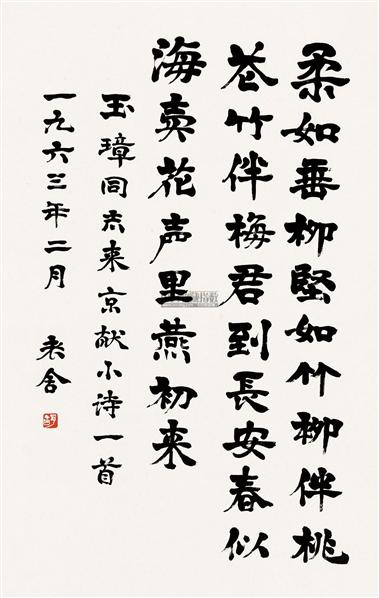 柔如垂柳堅如竹柳伴桃
花竹伴梅君到長安春似
海卖花声里燕初来
玉璋同志来京献小诗一首
一九六三年二月 老舍